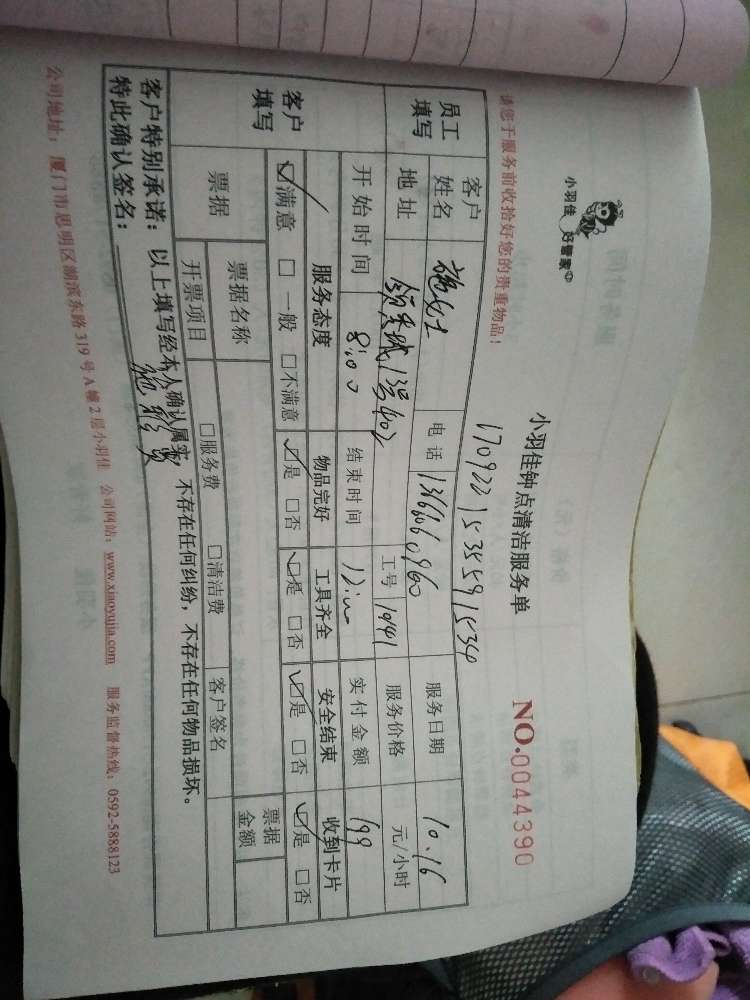 小羽佳 好管家
小羽佳钟点清洁服务单
NO.0044390
请您于服务前收拾好您的贵重物品!
员工填写
客户姓名
施女士
电话
服务日期
10.16
地址
领秀城13号402
工号
1041
服务价格
元/小时
开始时间
8:00
结束时间
12:00
实付金额
199
客户填写
服务态度
物品完好
工具齐全
安全结束
收到卡片
☑满意 □一般 □不满意
☑是 □否
☑是 □否
☑是 □否
☑是 □否
票据
票据名称
票据金额
开票项目
□服务费 □清洁费
客户签名
客户特别承诺:以上填写经本人确认属实,不存在任何纠纷,不存在任何物品损坏。
特此确认签名:
公司地址:厦门市思明区湖滨东路319号A幢2层小羽佳 公司网站:www.xiaoyujia.com 服务监督热线:0592-5888123